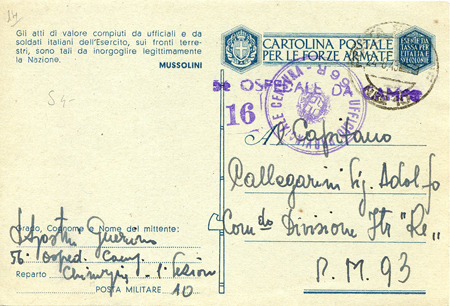 Gli atti di valore compiuti da ufficiali e da
soldati italiani dell'Esercito, sui fronti terre-
stri, sono tali da inorgoglire legittimamente
la Nazione.
MUSSOLINI
CARTOLINA POSTALE
PER LE FORZE ARMATE
ESENTE DA
TASSA PER
L'ITALIA
E COLONIE
OSPEDALE DA CAMPO
16
UFFICIO
Al Capitano
Callegarini Sig. Adolfo
Com.do Divisione Ftr "Re"
P.M. 93
Grado, Cognome e Nome del mittente:
56° Osped. Camp.
Reparto Chirurgia - 1ª Sezione
POSTA MILITARE 10